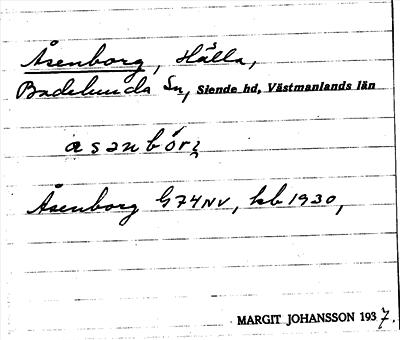 Åsenborg, Hälla,
Badelunda Sn, Siende hd, Västmanlands län
åsənbór̨
Åsenborg G74NV, kb 1930,
MARGIT JOHANSSON 1937.